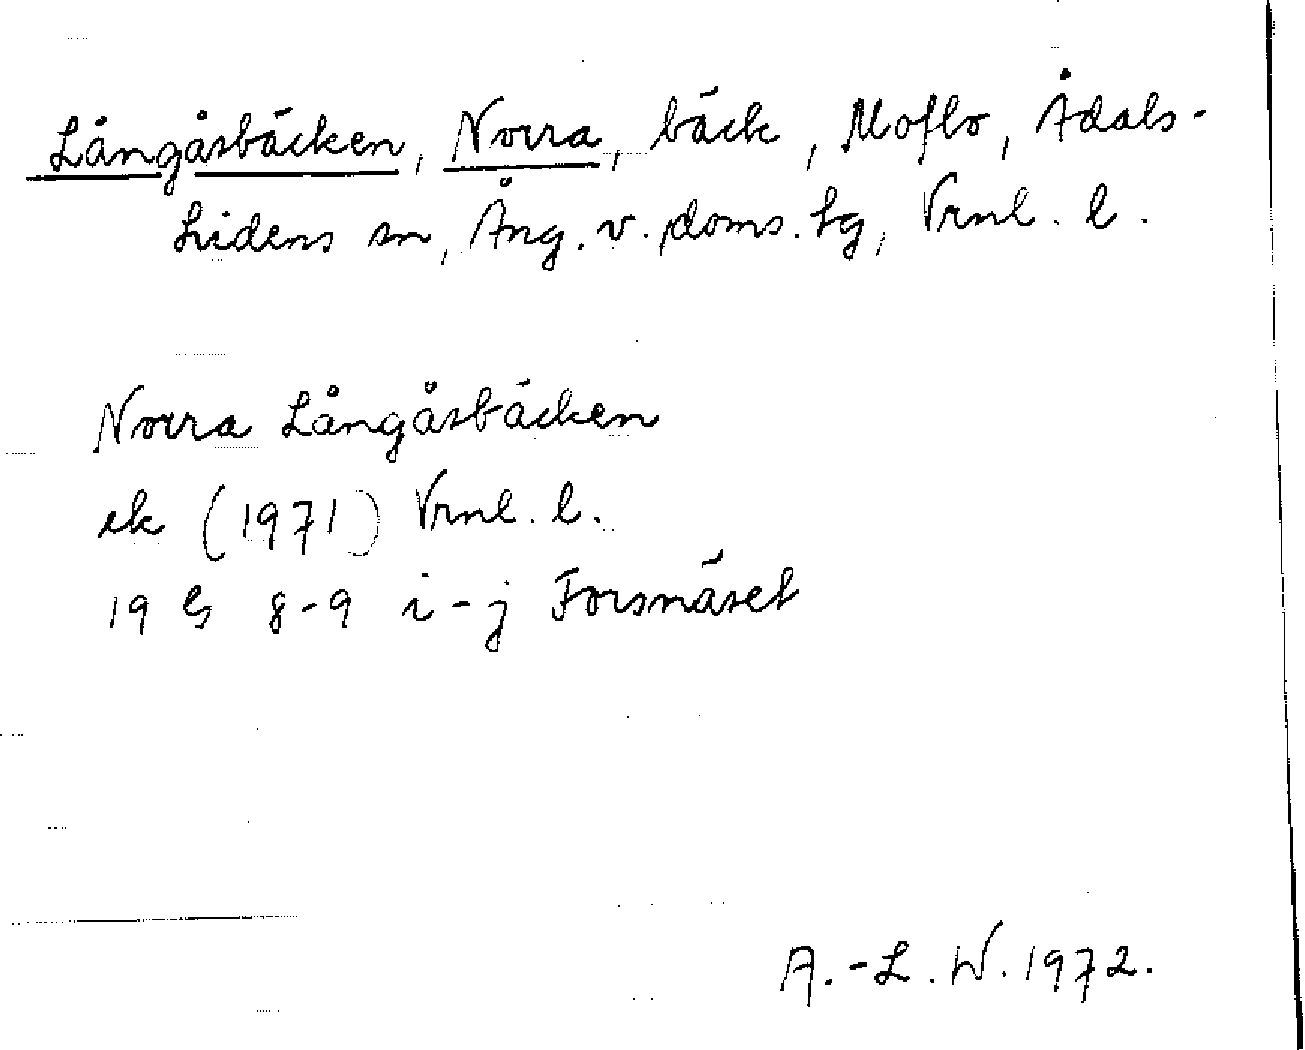 Långåsbäcken, Norra, bäck, Moflo, Ådals-
Lidens sn, Ång. v. doms. tg, Vrnl. l.
Norra Långåsbäcken
ek (1971) Vrnl. l.
19 G 8-9 i-j Forsnäset
A.-L. W. 1972.